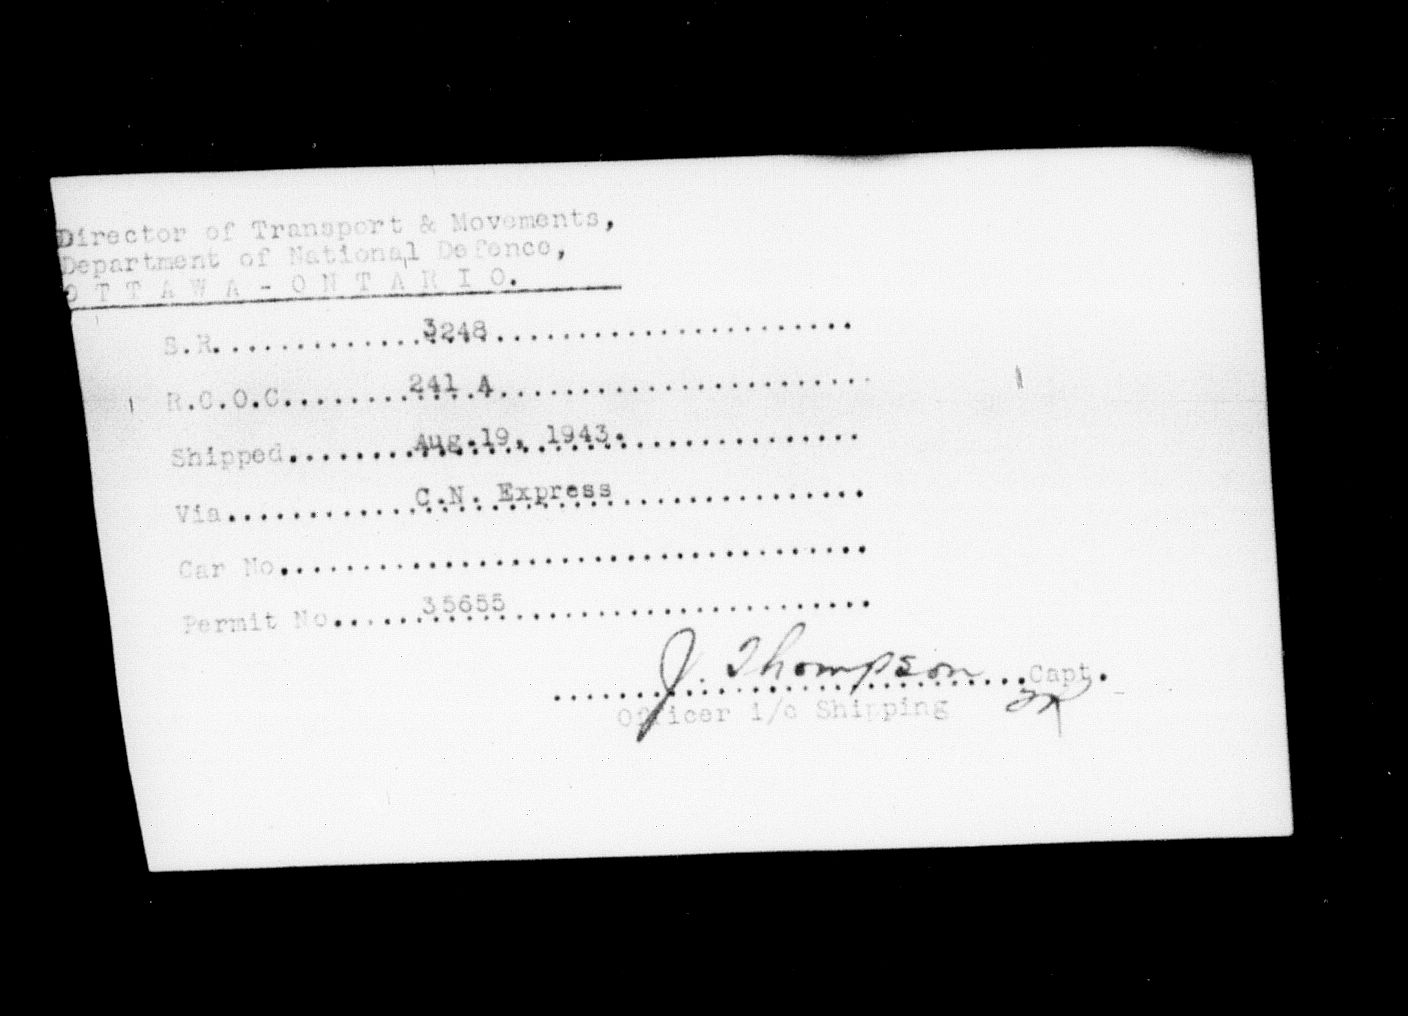 Director of Transport & Movements,
Department of National Defence,
O T T A W A - O N T A R I O.
S.R..............3248......................
R.C.O.C..........241 A.......................
Shipped........Aug.19, 1943...............
Via............C.N. Express...............
Car No....................................
Permit No......35655......................
J. Thompson...Capt.
Officer i/c Shipping